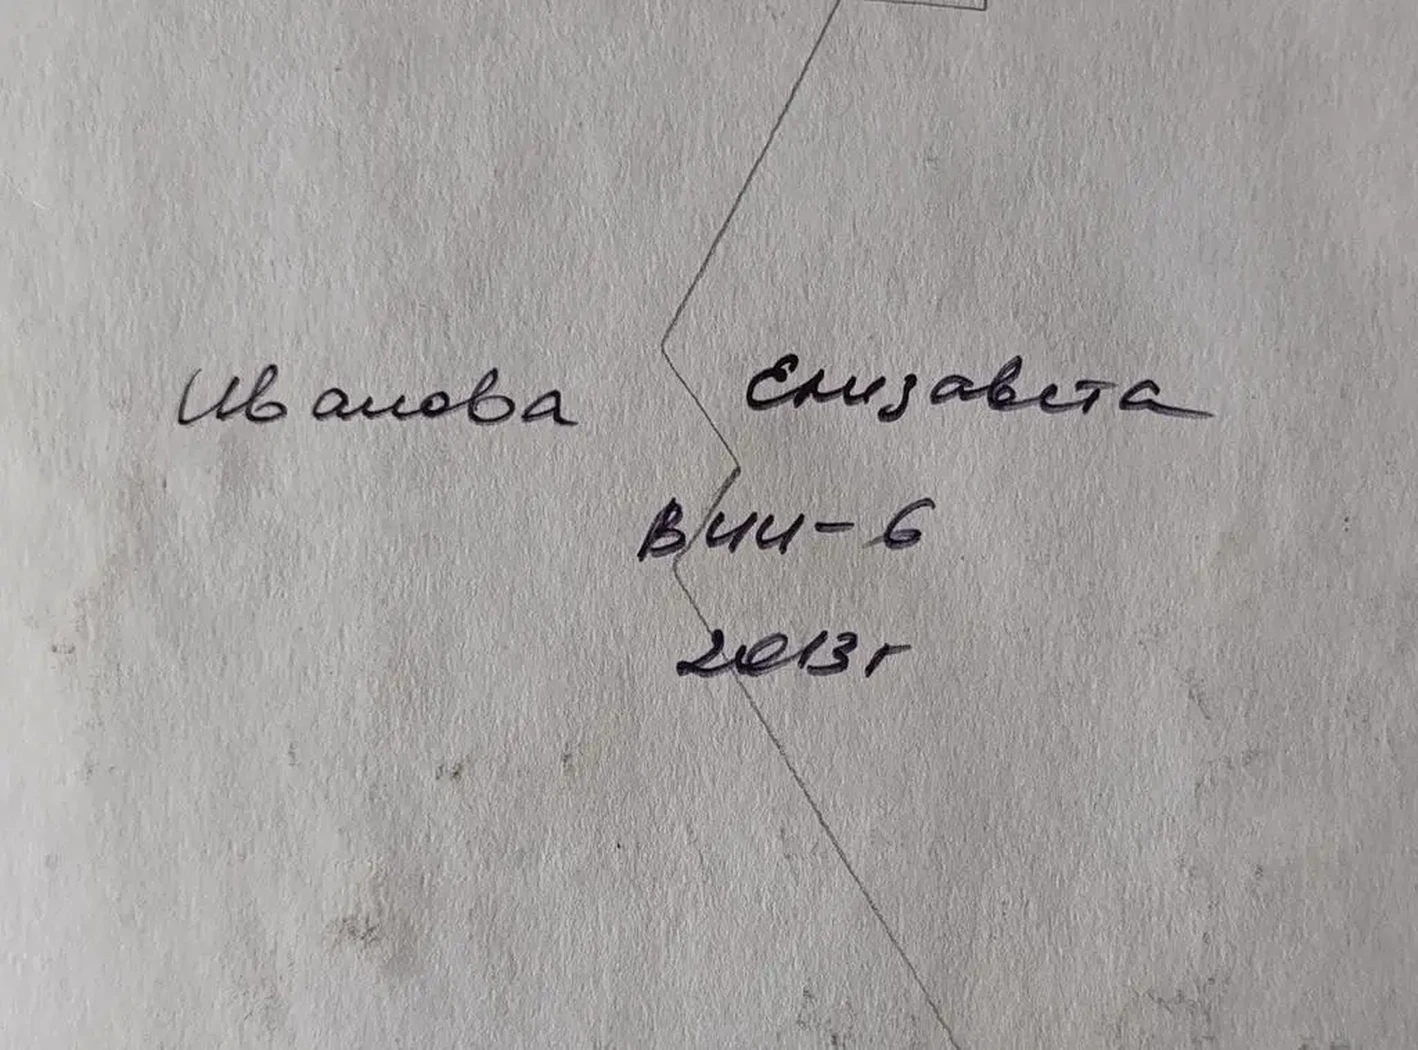 Иванова Елизавета
ВИИ-6
2013г